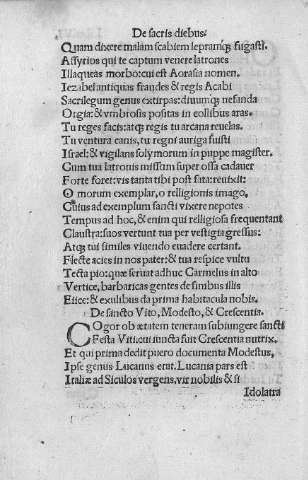 De sacris diebus
Quam dixere malam scabiem lepramq; fugasti.
Assyrios qui te captum venere latrones
Illaqueas morbo: cui est Aorasia nomen.
Iezabel antiquas fraudes & regis Acabi
Sacrilegum genus extirpas: diuumq; nefanda
Orgia: & vmbrosis positas in collibus aras.
Tu reges facis: atq; regis tu arcana reuelas.
Tu ventura canis, tu regni auriga fuisti
Israel: & vigilans solymorum in puppe magister.
Cum tua latronis missum super ossa cadauer
Forte foret: vis tanta tibi post fata: reuixit:
O morum exemplar, o relligionis imago,
Cuius ad exemplum sancti vixere nepotes
Tempus ad hoc, & enim qui relligiosa frequentant
Claustra: suos vertunt tua per vestigia gressus:
Atq; tui similes viuendo euadere certant.
Flecte acies in nos pater: & tua respice vultu
Tecta pio: quæ seruat adhuc Carmelus in alto
Vertice, barbaricas gentes de finibus illis
Eiice: & exulibus da prima habitacula nobis.
De sancto Vito, Modesto, & Crescentia.
COgor ob ætatem teneram subiungere sancti
Festa Viti: cui iuncta fuit Crescentia nutrix.
Et qui prima dedit puero documenta Modestus,
Ipse genus Lucanus erat. Lucania pars est
Italiæ ad Siculos vergens, vir nobilis & si
Idolatra